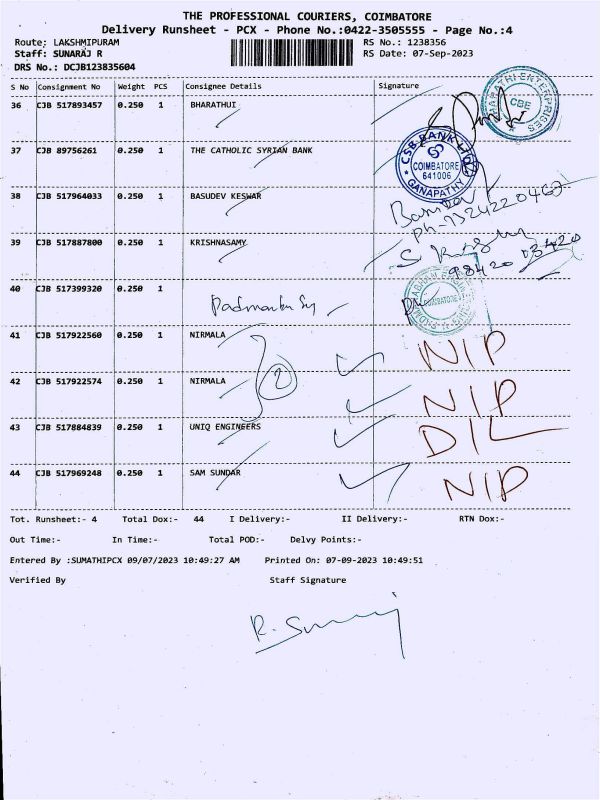 THE PROFESSIONAL COURIERS, COIMBATORE
Delivery Runsheet - PCX - Phone No.:0422-3505555 - Page No.:4
Route; LAKSHMIPURAM RS No.: 1238356
Staff: SUNARAJ R RS Date: 07-Sep-2023
DRS No.: DCJB123835604
S No Consignment No Weight PCS Consignee Details Signature
36 CJB 517893457 0.250 1 BHARATHUI
BHARATHI ENTERPRISES CBE
37 CJB 89756261 0.250 1 THE CATHOLIC SYRIAN BANK
CSB BANK LTD. COIMBATORE 641006 GANAPATHY
38 CJB 517964033 0.250 1 BASUDEV KESWAR
39 CJB 517887800 0.250 1 KRISHNASAMY
40 CJB 517399320 0.250 1
41 CJB 517922560 0.250 1 NIRMALA NIP
2
42 CJB 517922574 0.250 1 NIRMALA NIP
43 CJB 517884839 0.250 1 UNIQ ENGINEERS D/L
44 CJB 517969248 0.250 1 SAM SUNDAR NIP
Tot. Runsheet:- 4 Total Dox:- 44 I Delivery:- II Delivery:- RTN Dox:-
Out Time:- In Time:- Total POD:- Delvy Points:-
Entered By :SUMATHIPCX 09/07/2023 10:49:27 AM Printed On: 07-09-2023 10:49:51
Verified By Staff Signature